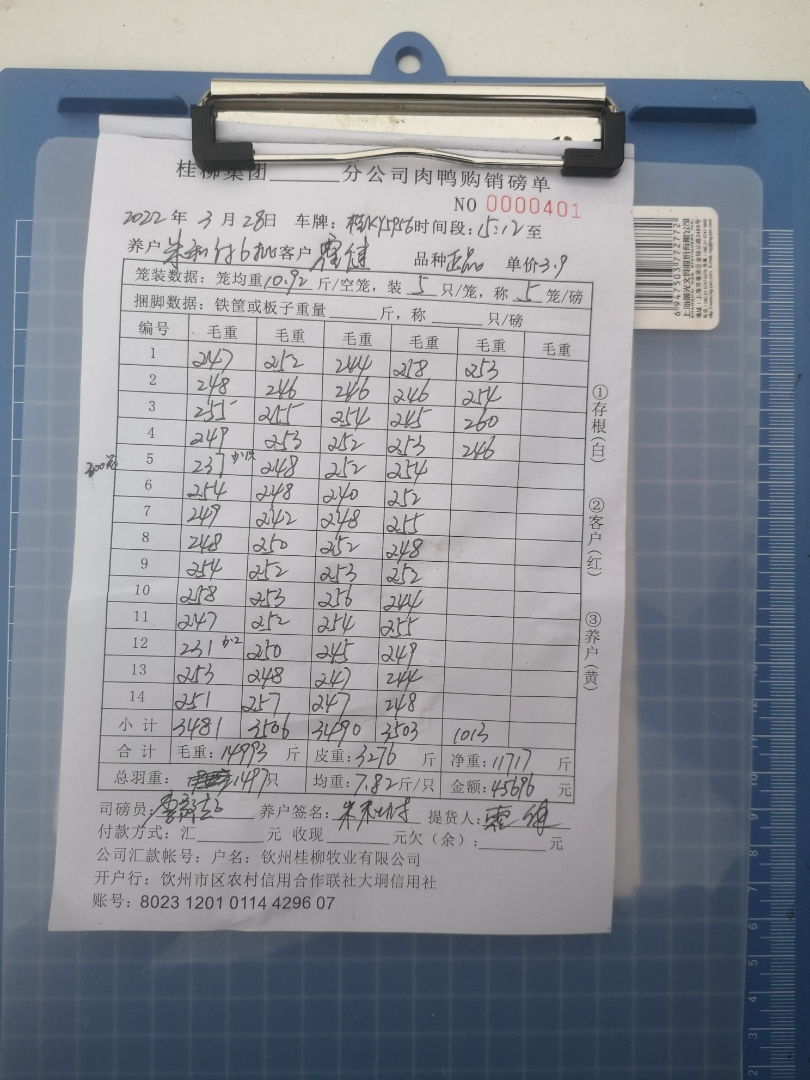 桂柳集团______分公司肉鸭购销磅单
NO 0000401
2022年 3月 28日 车牌: 桂K45956 时间段: 15:12 至
养户 朱 6批 客户 品种 正品 单价 3.9
笼装数据: 笼均重 10.92 斤/空笼, 装 5 只/笼, 称 5 笼/磅
捆脚数据: 铁筐或板子重量______斤, 称______只/磅
编号 毛重 毛重 毛重 毛重 毛重 毛重
1 247 252 244 258 253
2 248 246 246 246 254
3 255 255 254 245 260
4 249 253 252 253 246
5 237 248 252 254
6 254 248 240 252
7 249 242 248 255
8 248 250 252 248
9 254 252 253 252
10 258 253 256 244
11 247 252 254 255
12 231 250 245 249
13 253 248 247 244
14 251 257 247 248
小计 3481 3506 3490 3503 1013
合计 毛重: 14993 斤 皮重: 3276 斤 净重: 11717 斤
总羽重: 1497只 均重: 7.82斤/只 金额: 45696 元
司磅员: 养户签名: 朱 提货人:
付款方式: 汇______元 收现______元欠(余):______元
公司汇款帐号: 户名: 钦州桂柳牧业有限公司
开户行: 钦州市区农村信用合作联社大垌信用社
账号: 8023 1201 0114 4296 07
①存根(白)
②客户(红)
③养户(黄)
6 947503 772772